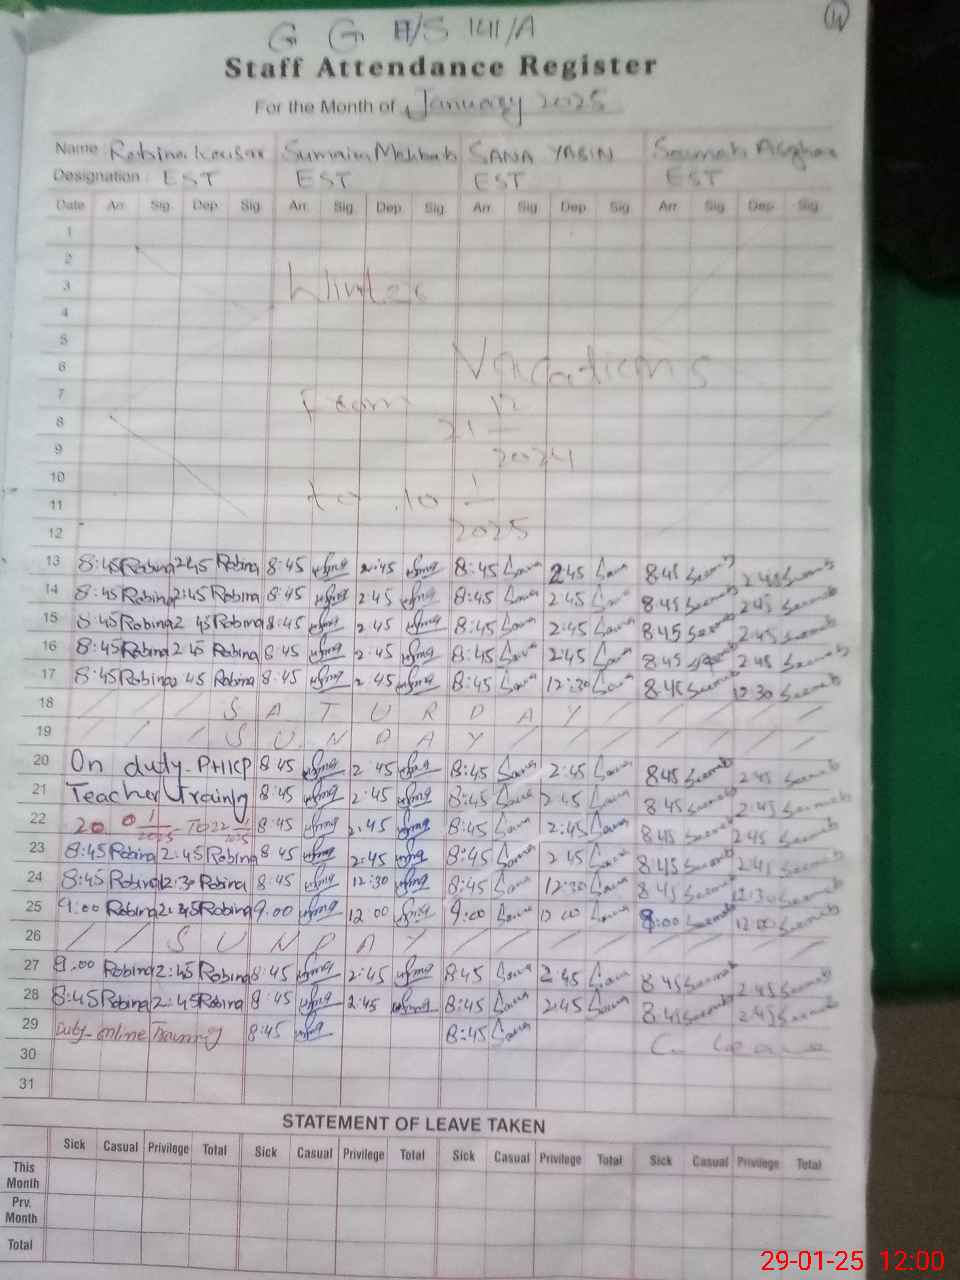 G G H/S 141/A
Staff Attendance Register
For the Month of January 2025
Name : Robina Kousar Sumaira Mehtab SANA YASIN Seemab Asghar
Designation : EST EST EST EST
Date Arr. Sig. Dep. Sig. Arr. Sig. Dep. Sig. Arr. Sig. Dep. Sig. Arr. Sig. Dep. Sig.
1
2
3 Winter
4
5
6 Vacations
7 From 12
8 21
9 2024
10 1
11 to 10
12 2025
13 8:45 Robina 2:45 Robina 8:45 2:45 8:45 Sana 2:45 Sana 8:45 Seemab 2:45 Seemab
14 8:45 Robina 2:45 Robina 8:45 2:45 8:45 Sana 2:45 Sana 8:45 Seemab 2:45 Seemab
15 8:45 Robina 2 45 Robina 8:45 2:45 8:45 Sana 2:45 Sana 8:45 Seemab 2:45 Seemab
16 8:45 Robina 2 45 Robina 8:45 2:45 8:45 Sana 2:45 Sana 8:45 Seemab 2:45 Seemab
17 8:45 Robina 45 Robina 8:45 2:45 8:45 Sana 12:30 Sana 8:45 Seemab 12:30 Seemab
18 / / / S A T U R D A Y / / / / /
19 / / / S U N D A Y / / / / / / /
20 On duty-PHKP 8:45 2:45 8:45 Sana 2:45 Sana 8:45 Seemab 2:45 Seemab
21 Teacher Training 8:45 2:45 8:45 Sana 2:45 Sana 8:45 Seemab 2:45 Seemab
22 20 1/2025 To 22 1/2025 8:45 2:45 8:45 Sana 2:45 Sana 8:45 Seemab 2:45 Seemab
23 8:45 Robina 2:45 Robina 8:45 2:45 8:45 Sana 2:45 Sana 8:45 Seemab 2:45 Seemab
24 8:45 Robina 12:30 Robina 8:45 12:30 8:45 Sana 12:30 Sana 8:45 Seemab 12:30 Seemab
25 9:00 Robina 2:45 Robina 9.00 12 00 9:00 Sana 12 00 Sana :00 Seemab 12:00 Seemab
26 / / S U N D A Y / / / / / / / /
27 .00 Robina 2:45 Robina 8:45 2:45 8:45 Sana 2:45 Sana 8:45 Seemab 2:45 Seemab
28 8:45 Robina 2:45 Robina 8:45 2:45 8:45 Sana 2:45 Sana 8:45 Seemab 2:45 Seemab
29 Duty-online Training 8:45 8:45 Sana C. Leave
30
31
STATEMENT OF LEAVE TAKEN
Sick Casual Privilege Total Sick Casual Privilege Total Sick Casual Privilege Total Sick Casual Privilege Total
This
Month
Prv.
Month
Total
29-01-25 12:00